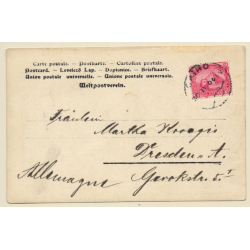 Carte postale. — Postkarte. — Cartolina postale.
Postcard. — Levelező Lap. — Dopisnice. — Briefkaart.
Union postale universelle. — Unione postale universale.
Weltpostverein.
Fräulein
Martha
Dresden-A.
Allemagne Gerokstr.